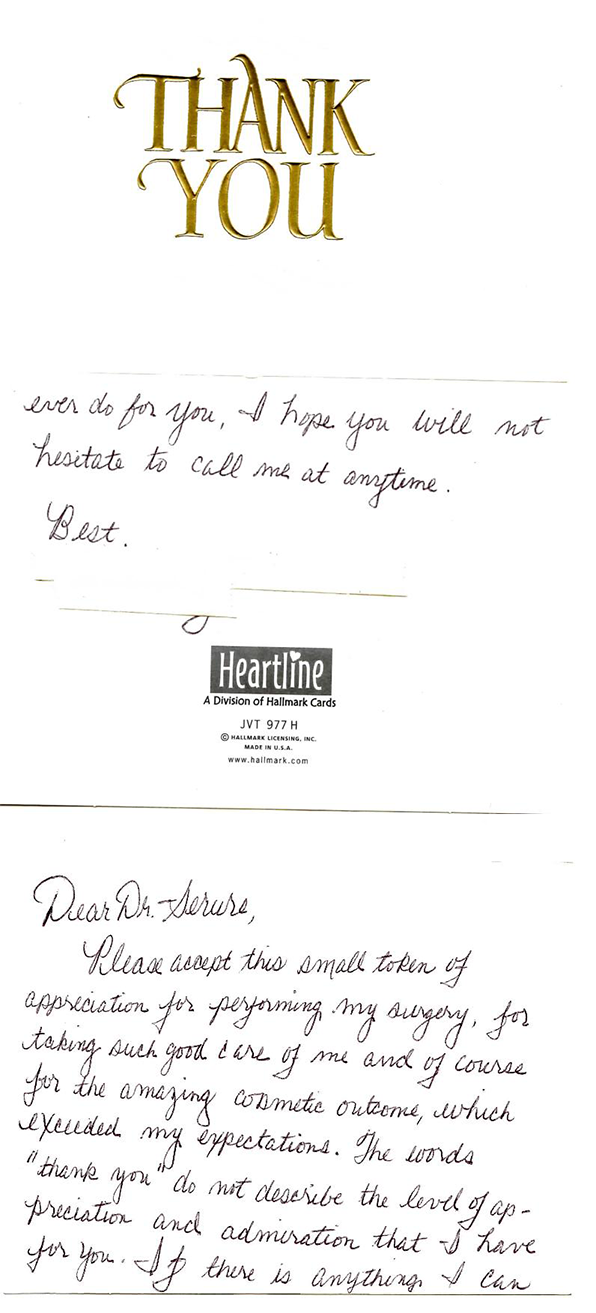 THANK
YOU
ever do for you, I hope you will not
hesitate to call me at anytime.
Best.
Heartline
A Division of Hallmark Cards
JVT 977 H
© HALLMARK LICENSING, INC.
MADE IN U.S.A.
www.hallmark.com
Dear Dr. Serure,
Please accept this small token of
appreciation for performing my surgery, for
taking such good care of me and of course
for the amazing cosmetic outcome, which
exceeded my expectations. The words
"thank you" do not describe the level of ap-
preciation and admiration that I have
for you. If there is anything I can